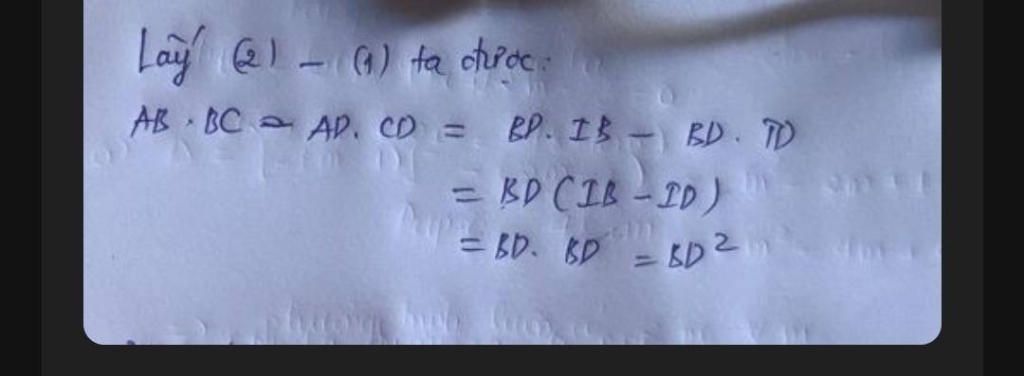 Lấy (2) - (1) ta được:
AB . BC - AD. CD = BD. IB - BD . ID
= BD (IB - ID)
= BD. BD = BD²